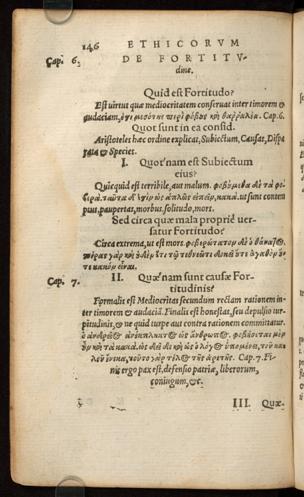 146 ETHICORVM
Cap. 6. DE FORTITV-
dine.
Quid est Fortitudo?
Est uirtus quæ mediocritatem conseruat inter timorem &
audaciam, ὅτι μεσότης περὶ φόβους καὶ θαῤῥαλέα. Cap. 6.
Quot sunt in ea consid.
Aristoteles hæc ordine explicat, Subiectum, Causas, Dispa
rata & Species.
I. Quot'nam est Subiectum
eius?
Quicquid est terribile, aut malum. φοβούμεθα δὲ τὰ φο-
βερὰ. ταῦτα δ' ἐστὶν ὡς ἁπλῶς εἰπεῖν, κακά. ut sunt contem
ptus, paupertas, morbus, solitudo, mors.
Sed circa quæ mala propriè uer-
satur Fortitudo?
Circa extrema, ut est mors. φοβερώτατον δὲ ὁ θάνατος,
πέρας γὰρ καὶ οὐδὲν ἔτι τῷ τεθνεῶτι δοκεῖ οὔτε ἀγαθὸν οὔ-
τε κακὸν εἶναι.
Cap. 7. II. Quæ'nam sunt causæ For-
titudinis?
Formalis est Mediocritas secundum rectam rationem in-
ter timorem & audaciã. Finalis est honestas, seu depulsio tur-
pitudinis, & ne quid turpe aut contra rationem committatur.
ὁ ἀνδρεῖος ἀνέκπληκτος ὡς ἄνθρωπος. φοβήσεται μὲν
οὖν καὶ τὰ τοιαῦτα, ὡς δεῖ δὲ καὶ ὡς ὁ λόγος ὑπομένει, τοῦ κα-
λοῦ ἕνεκα, τοῦτο γὰρ τέλος τῆς ἀρετῆς. Cap. 7. Fi-
nis ergo pax est, defensio patriæ, liberorum,
coniugum, &c.
III. Quæ-